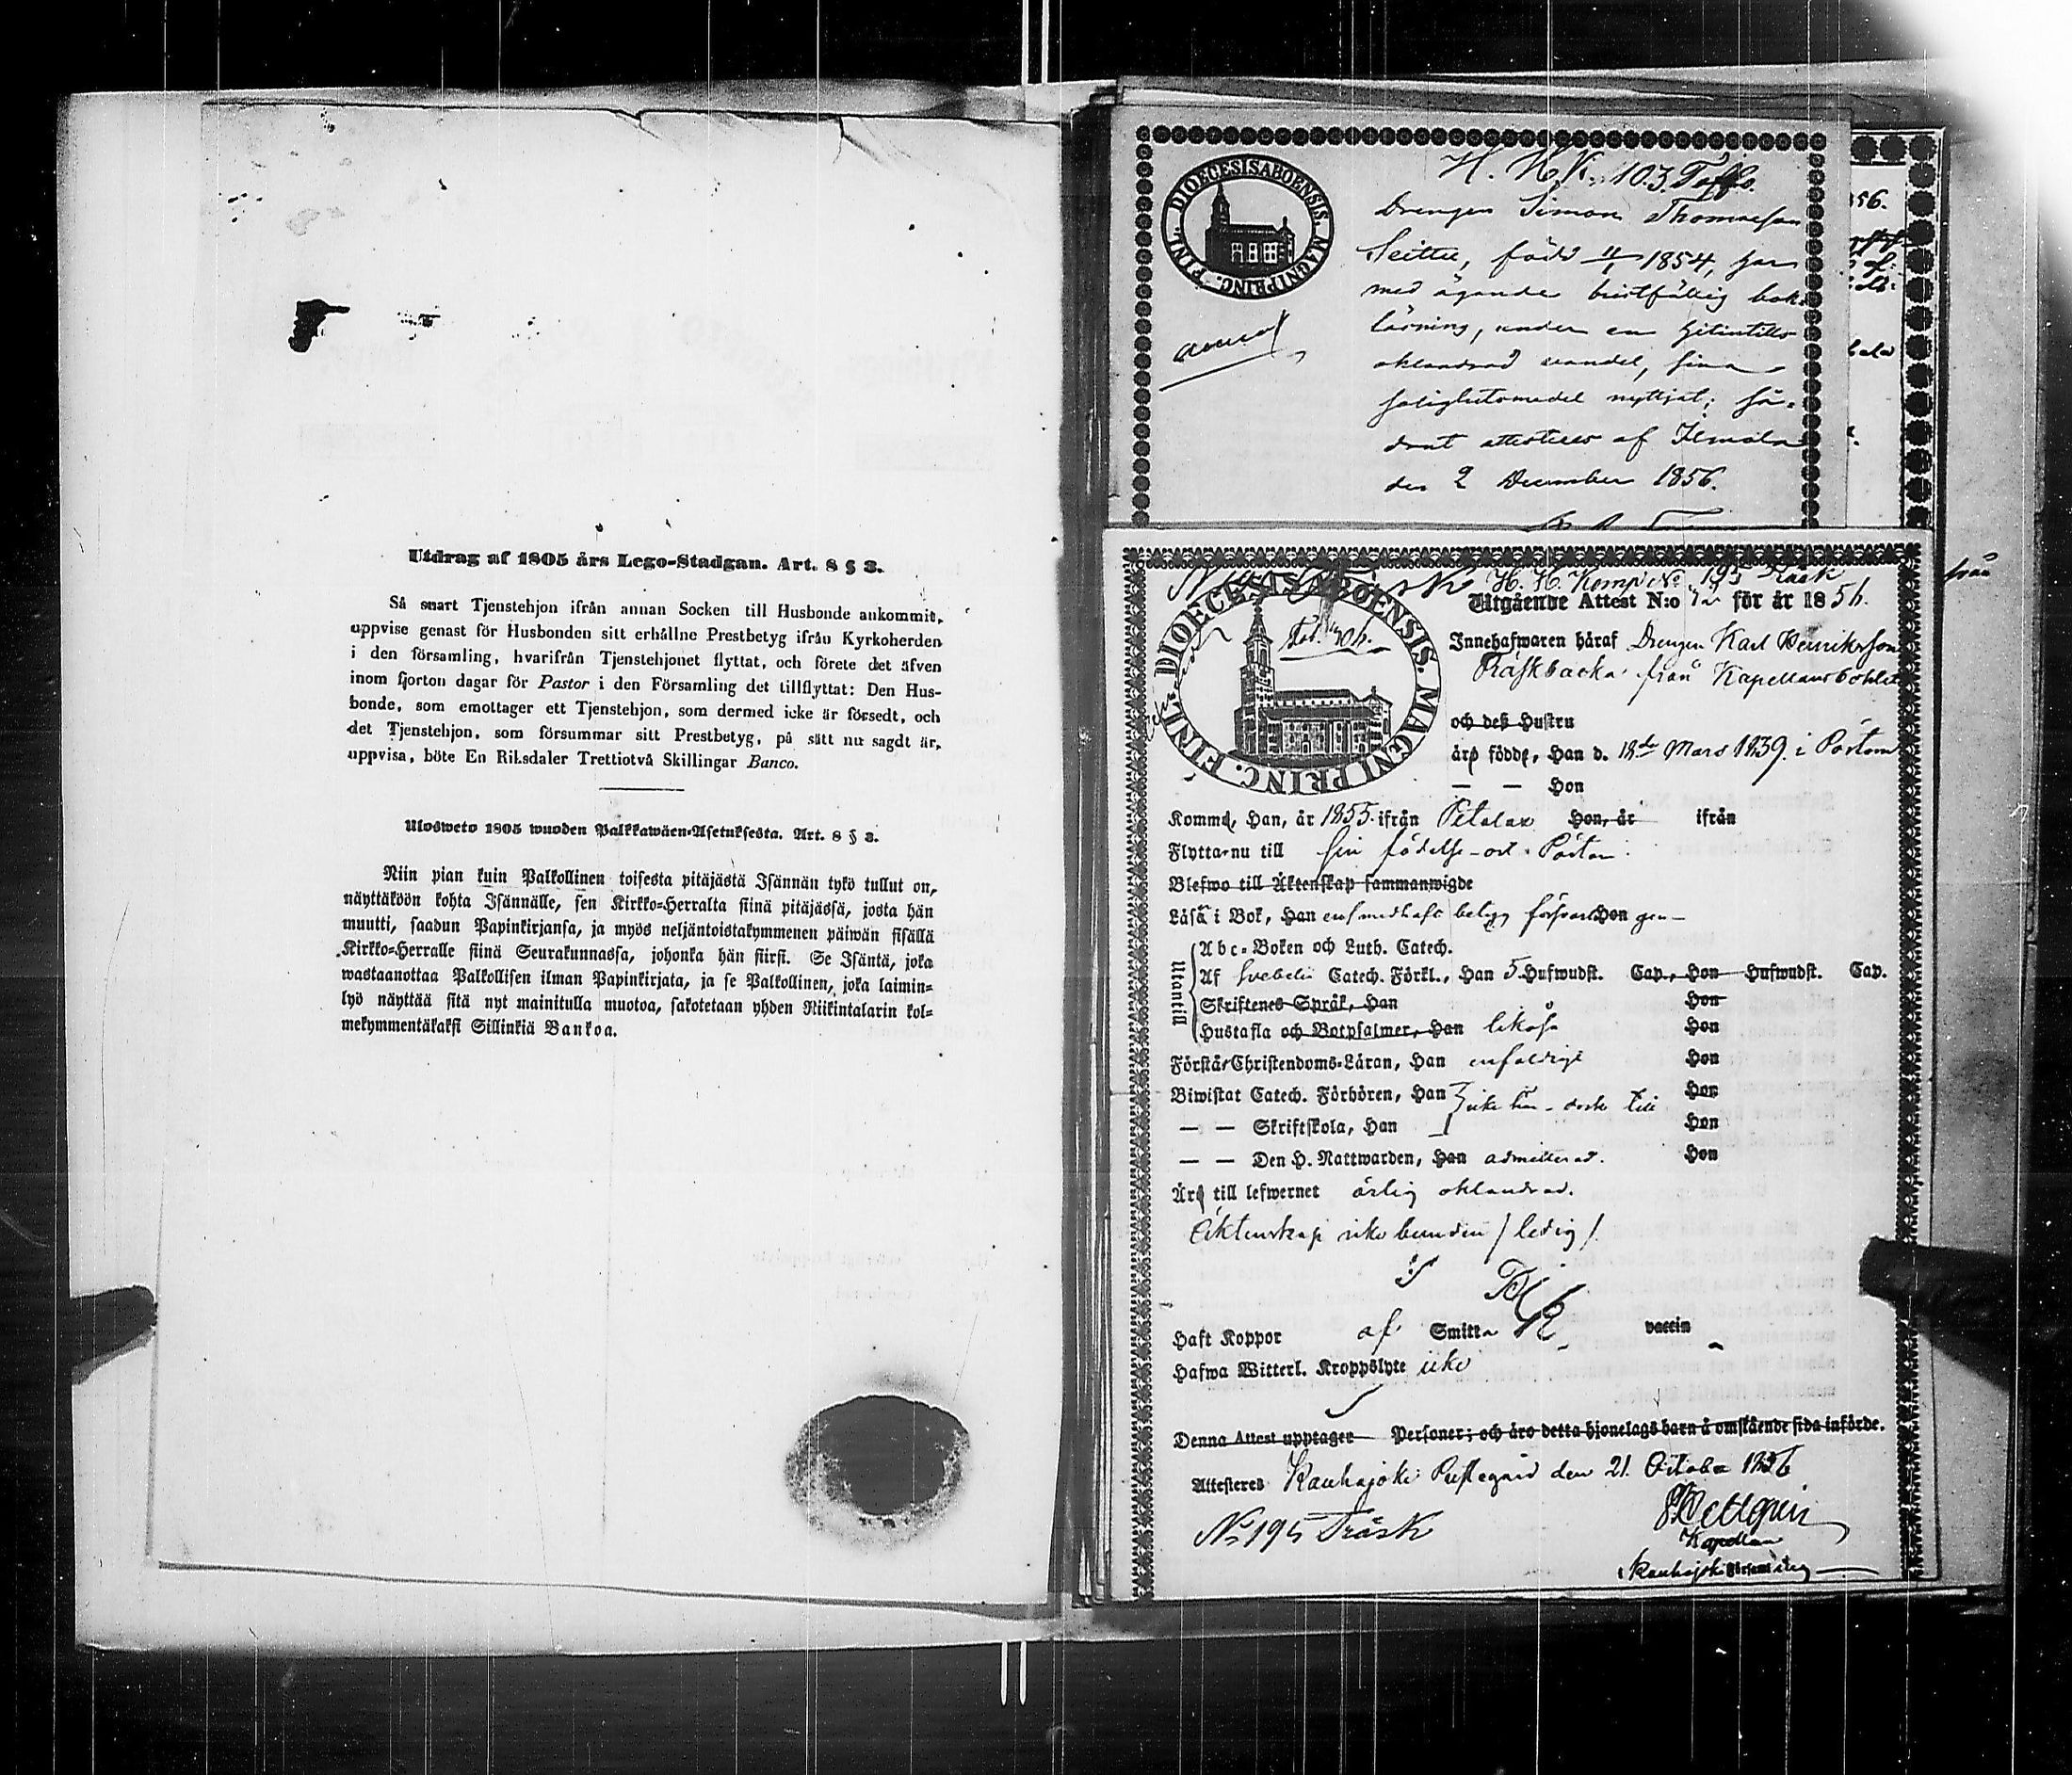 Utdrag af 1805 års Lego-Stadgan. Art. 8 § 3.
Så snart Tjenstehjon ifrån annan Socken till Husbonde ankommit,
uppvise genast för Husbonden sitt erhållne Prestbetyg ifrån Kyrkoherden
i den församling, hvarifrån Tjenstehjonet flyttat, och förete det äfven
inom fjorton dagar för Pastor i den Församling det tillflyttat: Den Hus-
bonde, som emottager ett Tjenstehjon, som dermed icke är försedt, och
det Tjenstehjon, som försummar sitt Prestbetyg, på sätt nu sagdt är,
uppvisa, böte En Riksdaler Trettiotvå Skillingar Banco.
Uloswеto 1805 wuoden Palkkawäen-Asetuksesta. Art. 8 § 3.
Niin pian kuin Palkollinen toisesta pitäjästä Isännän tykö tullut on,
näyttäköön kohta Isännälle, sen Kirkko-Herralta siinä pitäjässä, josta hän
muutti, saadun Papinkirjansa, ja myös neljäntoistakymmenen päiwän sisällä
Kirkko-Herralle siinä Seurakunnassa, johonka hän siirsi. Se Isäntä, joka
wastaanottaa Palkollisen ilman Papinkirjata, ja se Palkollinen, joka laimin-
lyö näyttää sitä nyt mainitulla muotoa, sakotetaan yhden Riikintalarin kol-
mekymmentäkaksi Sillinkiä Bankoa.
DIOECESIS ABOENSIS. MAGNI PRINC. FINL.
H. H. K. 103 Töffs.
Drengen Simon Thomasson
Seittu, född 11/1 1854, har
med ägande bristfällig bok-
läsning, under en hitintills
oklandrad vandel, sina
salighetsmedel nyttjat; så-
dant attesteras af Ilmola
den 2 December 1856.
356.
från
H. H. Komp No 195 Träsk
DIOECESIS ABOENSIS. MAGNI PRINC. FINL.
Utgående Attest N:o 72 för år 1856.
Innehafwaren häraf Drengen Karl Henriksson
Räfsbacka från Kapellansbohlet
och deß Hustru
äro födde, Han d. 18de Mars 1839. i Pörtom
— — Hon
Komme, Han, år 1855. ifrån Petalax Hon, år ifrån
Flytta nu till sin födelse-ort Pörtom.
Blefwo till Äktenskap sammanwigde
Läsa i Bok, Han Hon
Utantill
Abc-Boken och Luth. Catech.
Af Svebelii Catech. Förkl., Han 5 Hufwudst. Cap., Hon Hufwudst. Cap.
Skriftenes Språk, Han Hon
Hustafla och Botpsalmer, Han likaså Hon
Förstår Christendoms-Läran, Han enfaldigt Hon
Biwistat Catech. Förhören, Han icke här Hon
— — Skriftskola, Han Hon
— — Den H. Nattwarden, Han admitterad. Hon
Äro till lefwernet ärlig oklandrad.
Äktenskap icke bunden / ledig /.
Haft Koppor af Smitta vaccin
Hafwa Witterl. Kroppslyte icke
Denna Attest upptager Personer; och äro detta hjonelags barn å omstående sida införde.
Attesteres Kauhajoki Prestegård den 21. October 1856
No 195 Träsk
Kapellan
i Kauhajoki Församling